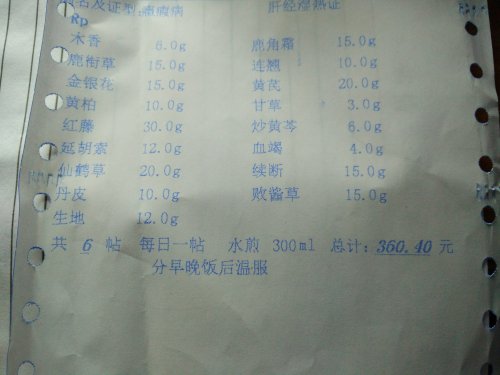 病名及证型:癥瘕病 肝经湿热证
Rp
木香 6.0g 鹿角霜 15.0g
鹿衔草 15.0g 连翘 10.0g
金银花 15.0g 黄芪 20.0g
黄柏 10.0g 甘草 3.0g
红藤 30.0g 炒黄芩 6.0g
延胡索 12.0g 血竭 4.0g
仙鹤草 20.0g 续断 15.0g
丹皮 10.0g 败酱草 15.0g
生地 12.0g
共 6 帖 每日一帖 水煎 300ml 总计: 360.40 元
分早晚饭后温服